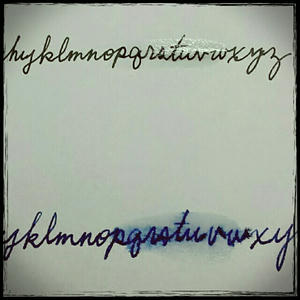 hyklmnopqrstuvwxyz
yklmnopqrstuvwxy